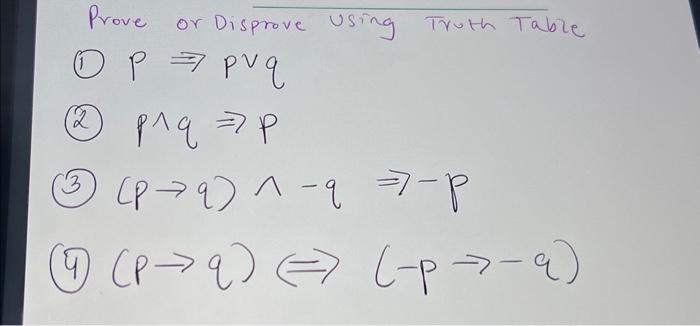 Prove or Disprove Using Truth Table
① p ⇒ p∨q
② p∧q ⇒ p
③ (p→q) ∧ -q ⇒ -p
④ (p→q) ⇔ (-p → -q)